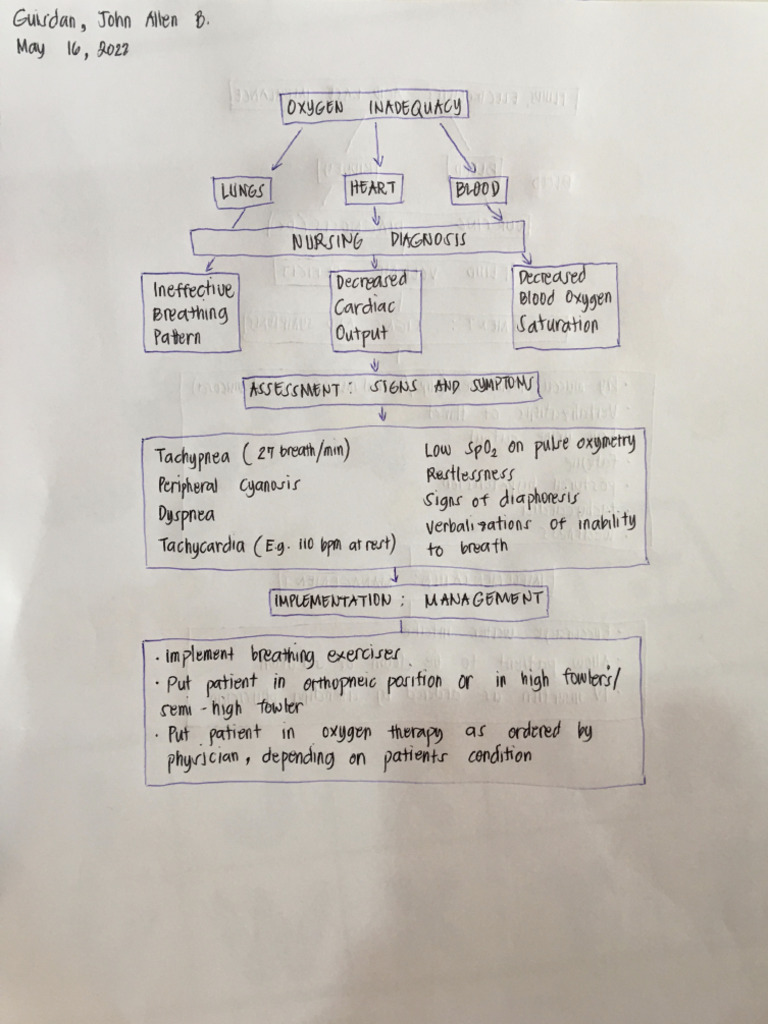 Guirdan, John Allen B.
May 16, 2022
OXYGEN INADEQUACY
LUNGS HEART BLOOD
NURSING DIAGNOSIS
Ineffective
Breathing
Pattern
Decreased
Cardiac
Output
Decreased
Blood Oxygen
Saturation
ASSESSMENT: SIGNS AND SYMPTOMS
Tachypnea (27 breath/min)
Peripheral Cyanosis
Dyspnea
Tachycardia (E.g. 110 bpm at rest)
Low SpO₂ on pulse oxymetry
Restlessness
Signs of diaphoresis
Verbalizations of inability
to breath
IMPLEMENTATION: MANAGEMENT
· Implement breathing exercises
· Put patient in orthopneic position or in high fowlers/
semi-high fowler
· Put patient in oxygen therapy as ordered by
physician, depending on patients condition